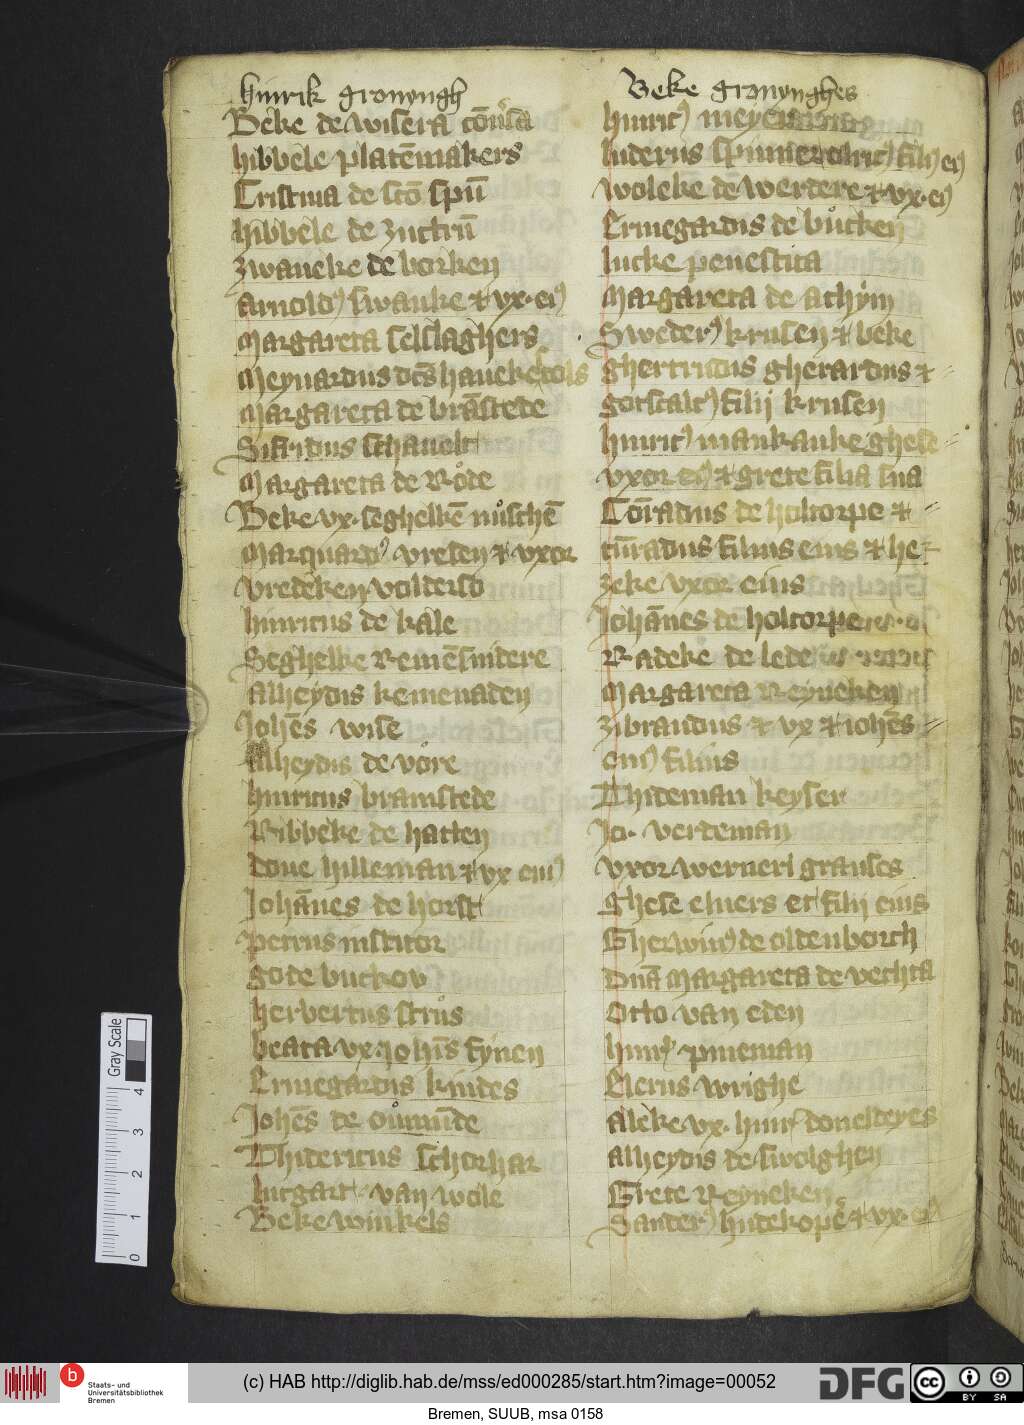 hinrik gronyngh
Beke de wisera cōūsa
hibbele platēmakers
Cristina de scō spū
hibbele de zuttrū
zwaneke de borken
arnoldꝰ swanke et vx. eiꝰ
Margareta selslaghers
Meynardus dc̄s havekesvols
Margareta de brāstede
Sifridus schavolt
Margareta de Rode
Beke vx. seghelkē muschē
Marquardꝰ vreden et vxor
vredeken volderso
hinricus de kale
Seghelke Remēsnidere
alheydis kemenaden
Johēs wise
alheydis de vore
hinricus bramstede
Ribbeke de hatten
done hilleman et vx eiuꝰ
Johānes de horst
petrus institor
gode buckow
herbertus strus
beata vx johīs fynen
Ermegardis kindes
Johēs de oumūde
Thidericus schorhar
lutgart van wole
Beke winkels
Beke gronynghes
hinricꝰ meyen
luderus spinner hinricꝰ filiꝰ eiꝰ
woleke de werdere et vx. eiꝰ
Ermegardis de bucken
lucke penestita
Margareta de achym
Swederꝰ krusen et beke
ghertrudis gherardus et
gotscalcꝰ filij krusen
hinricꝰ mankanke ghese
vxor eiꝰ et grete filia sua
Cōradus de holtorpe et
cūradus filius eius et he
zeke vxor eius
Johānes de holtorpe
Radeke de lede
Margareta Reyneken
zibrandus et vx et iohēs
eiuꝰ filius
Thideman keyser
Jo. verdeman
vxor werneri granses
Ghese elvers et filij eius
Gherwinꝰ de oldenborch
Dnā Margareta de vechta
Otto van eden
hinr pineman
Elerus wrighe
aleke vx. hinr doneldeyes
alheydis de swolghen
Grete Reyneken
Sanderꝰ hudekopē et vx. eiꝰ
Gray Scale
4
3
2
1
0
b
Staats- und
Universitätsbibliothek
Bremen
(c) HAB http://diglib.hab.de/mss/ed000285/start.htm?image=00052
DFG
cc
BY SA
Bremen, SUUB, msa 0158